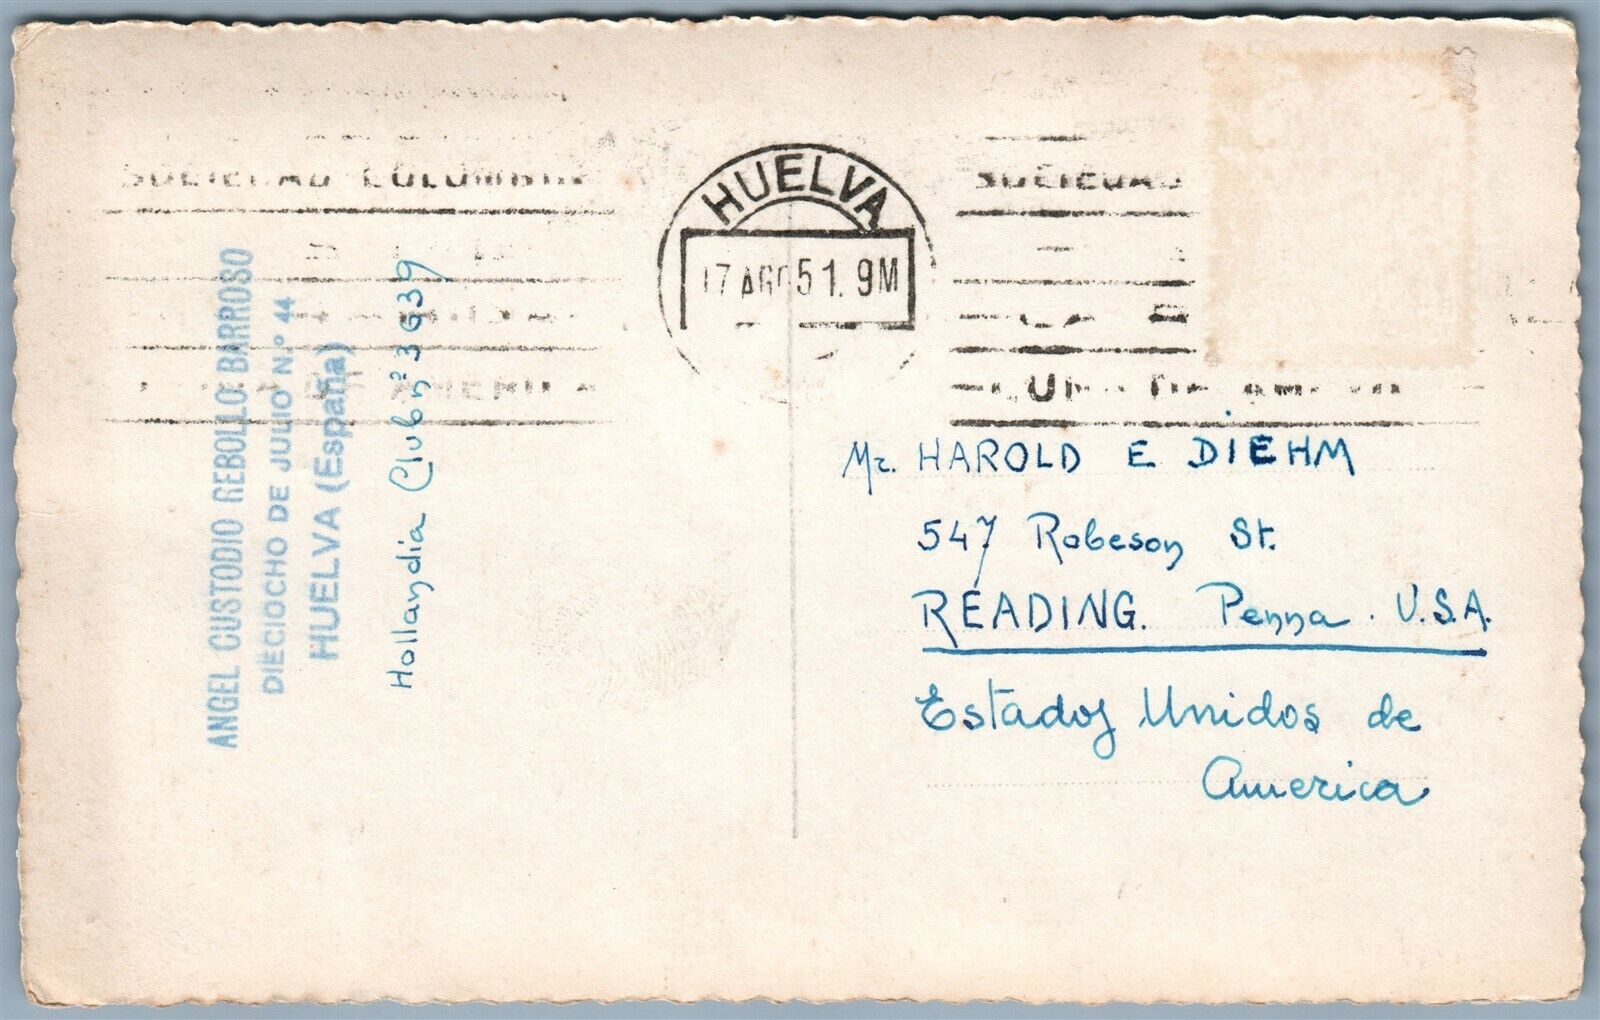 SOCIEDAD COLOMBINA
HUELVA
17 AGO 51. 9M
SOCIEDAD
CUNA DE AMERICA
ANGEL CUSTODIO REBOLLO BARROSO
DIECIOCHO DE JULIO N.º 44
HUELVA (España)
Hollandia Club nº 3639
Mr. HAROLD E DIEHM
547 Robeson St.
READING. Penna. U.S.A.
Estados Unidos de
America